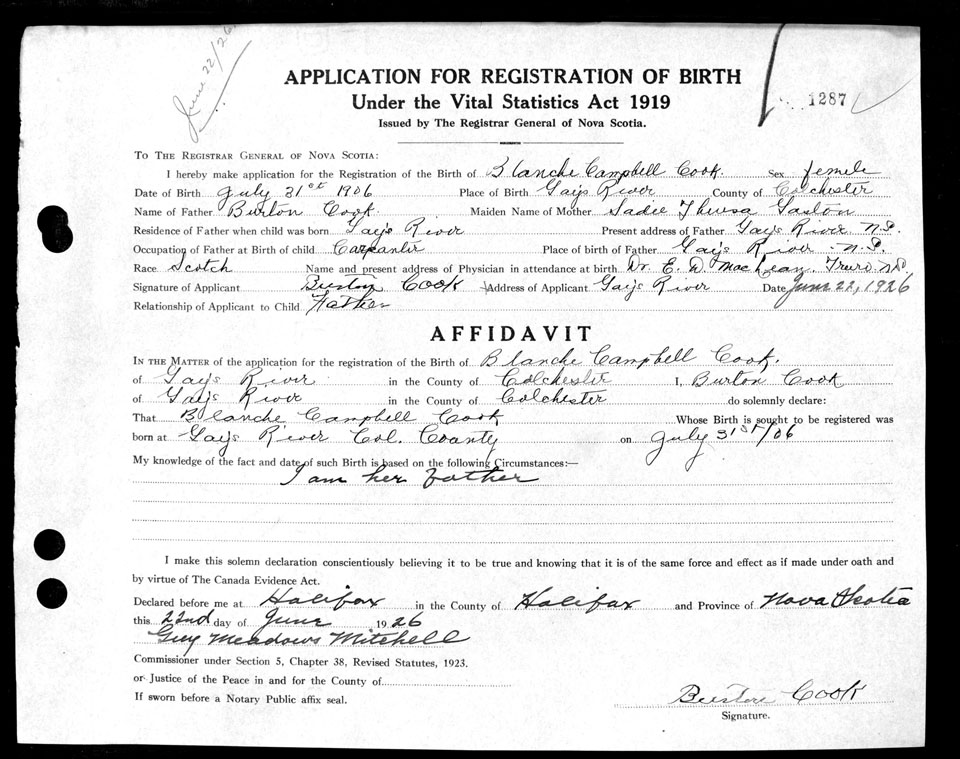 June 22/26
APPLICATION FOR REGISTRATION OF BIRTH
Under the Vital Statistics Act 1919
1287
Issued by The Registrar General of Nova Scotia.
TO THE REGISTRAR GENERAL OF NOVA SCOTIA:
I hereby make application for the Registration of the Birth of Blanche Campbell Cook. Sex female
Date of Birth July 31st 1906 Place of Birth Gays River County of Colchester
Name of Father Burton Cook. Maiden Name of Mother Sadie Theresa Gaston
Residence of Father when child was born Gay's River Present address of Father Gay's River N.S.
Occupation of Father at Birth of child Carpenter Place of birth of Father Gay's River N.S.
Race Scotch Name and present address of Physician in attendance at birth Dr. E. D. MacLean, Truro N.S.
Signature of Applicant Burton Cook Address of Applicant Gay's River Date June 22, 1926
Relationship of Applicant to Child Father
AFFIDAVIT
IN THE MATTER of the application for the registration of the Birth of Blanche Campbell Cook.
of Gay's River in the County of Colchester I, Burton Cook
of Gay's River in the County of Colchester do solemnly declare:
That Blanche Campbell Cook Whose Birth is sought to be registered was
born at Gay's River Col. County on July 31st/06
My knowledge of the fact and date of such Birth is based on the following Circumstances:—
I am her father
I make this solemn declaration conscientiously believing it to be true and knowing that it is of the same force and effect as if made under oath and
by virtue of The Canada Evidence Act.
Declared before me at Halifax in the County of Halifax and Province of Nova Scotia
this 22nd day of June 1926
Guy Meadows Mitchell
Commissioner under Section 5, Chapter 38, Revised Statutes, 1923.
or Justice of the Peace in and for the County of
If sworn before a Notary Public affix seal.
Burton Cook
Signature.